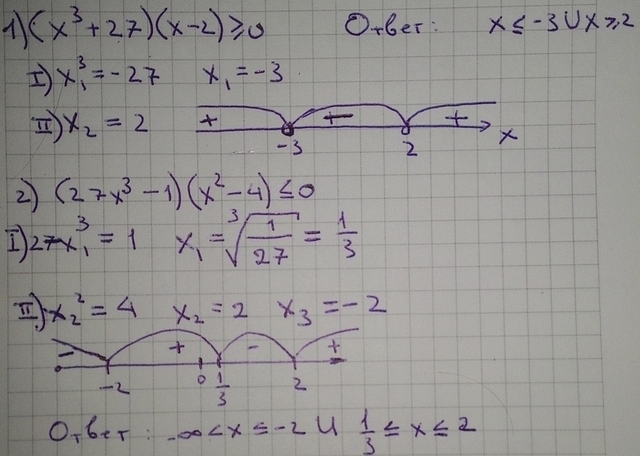 1) (x³+27)(x-2)≥0 Ответ: x≤-3 U x≥2
I) x₁³=-27 x₁=-3
II) x₂=2
+ - + x
-3 2
2) (27x³-1)(x²-4)≤0
I) 27x₁³=1 x₁=∛(1/27)=1/3
II) x₂²=4 x₂=2 x₃=-2
- + - +
-2 0 1/3 2
Ответ: -∞<x≤-2 U 1/3≤x≤2